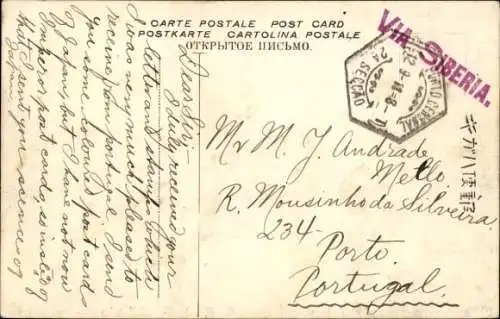 CARTE POSTALE POST CARD
POSTKARTE CARTOLINA POSTALE
ОТКРЫТОЕ ПИСЬМО.
VIA SIBERIA.
PORTO CENTRAL
2A SECÇÃO
Dear Sir,
I duly received your
letter and stamps which
I was very much pleased to
receive from Portugal. I send
you some coloured post cards
of Japan, but I have not now
Emperors post cards, so instead of
that I sent you scence of
Mr M. J. Andrade
Mello.
R. Mousinho da Silveira
234-
Porto
Portugal.
キガハ便郵